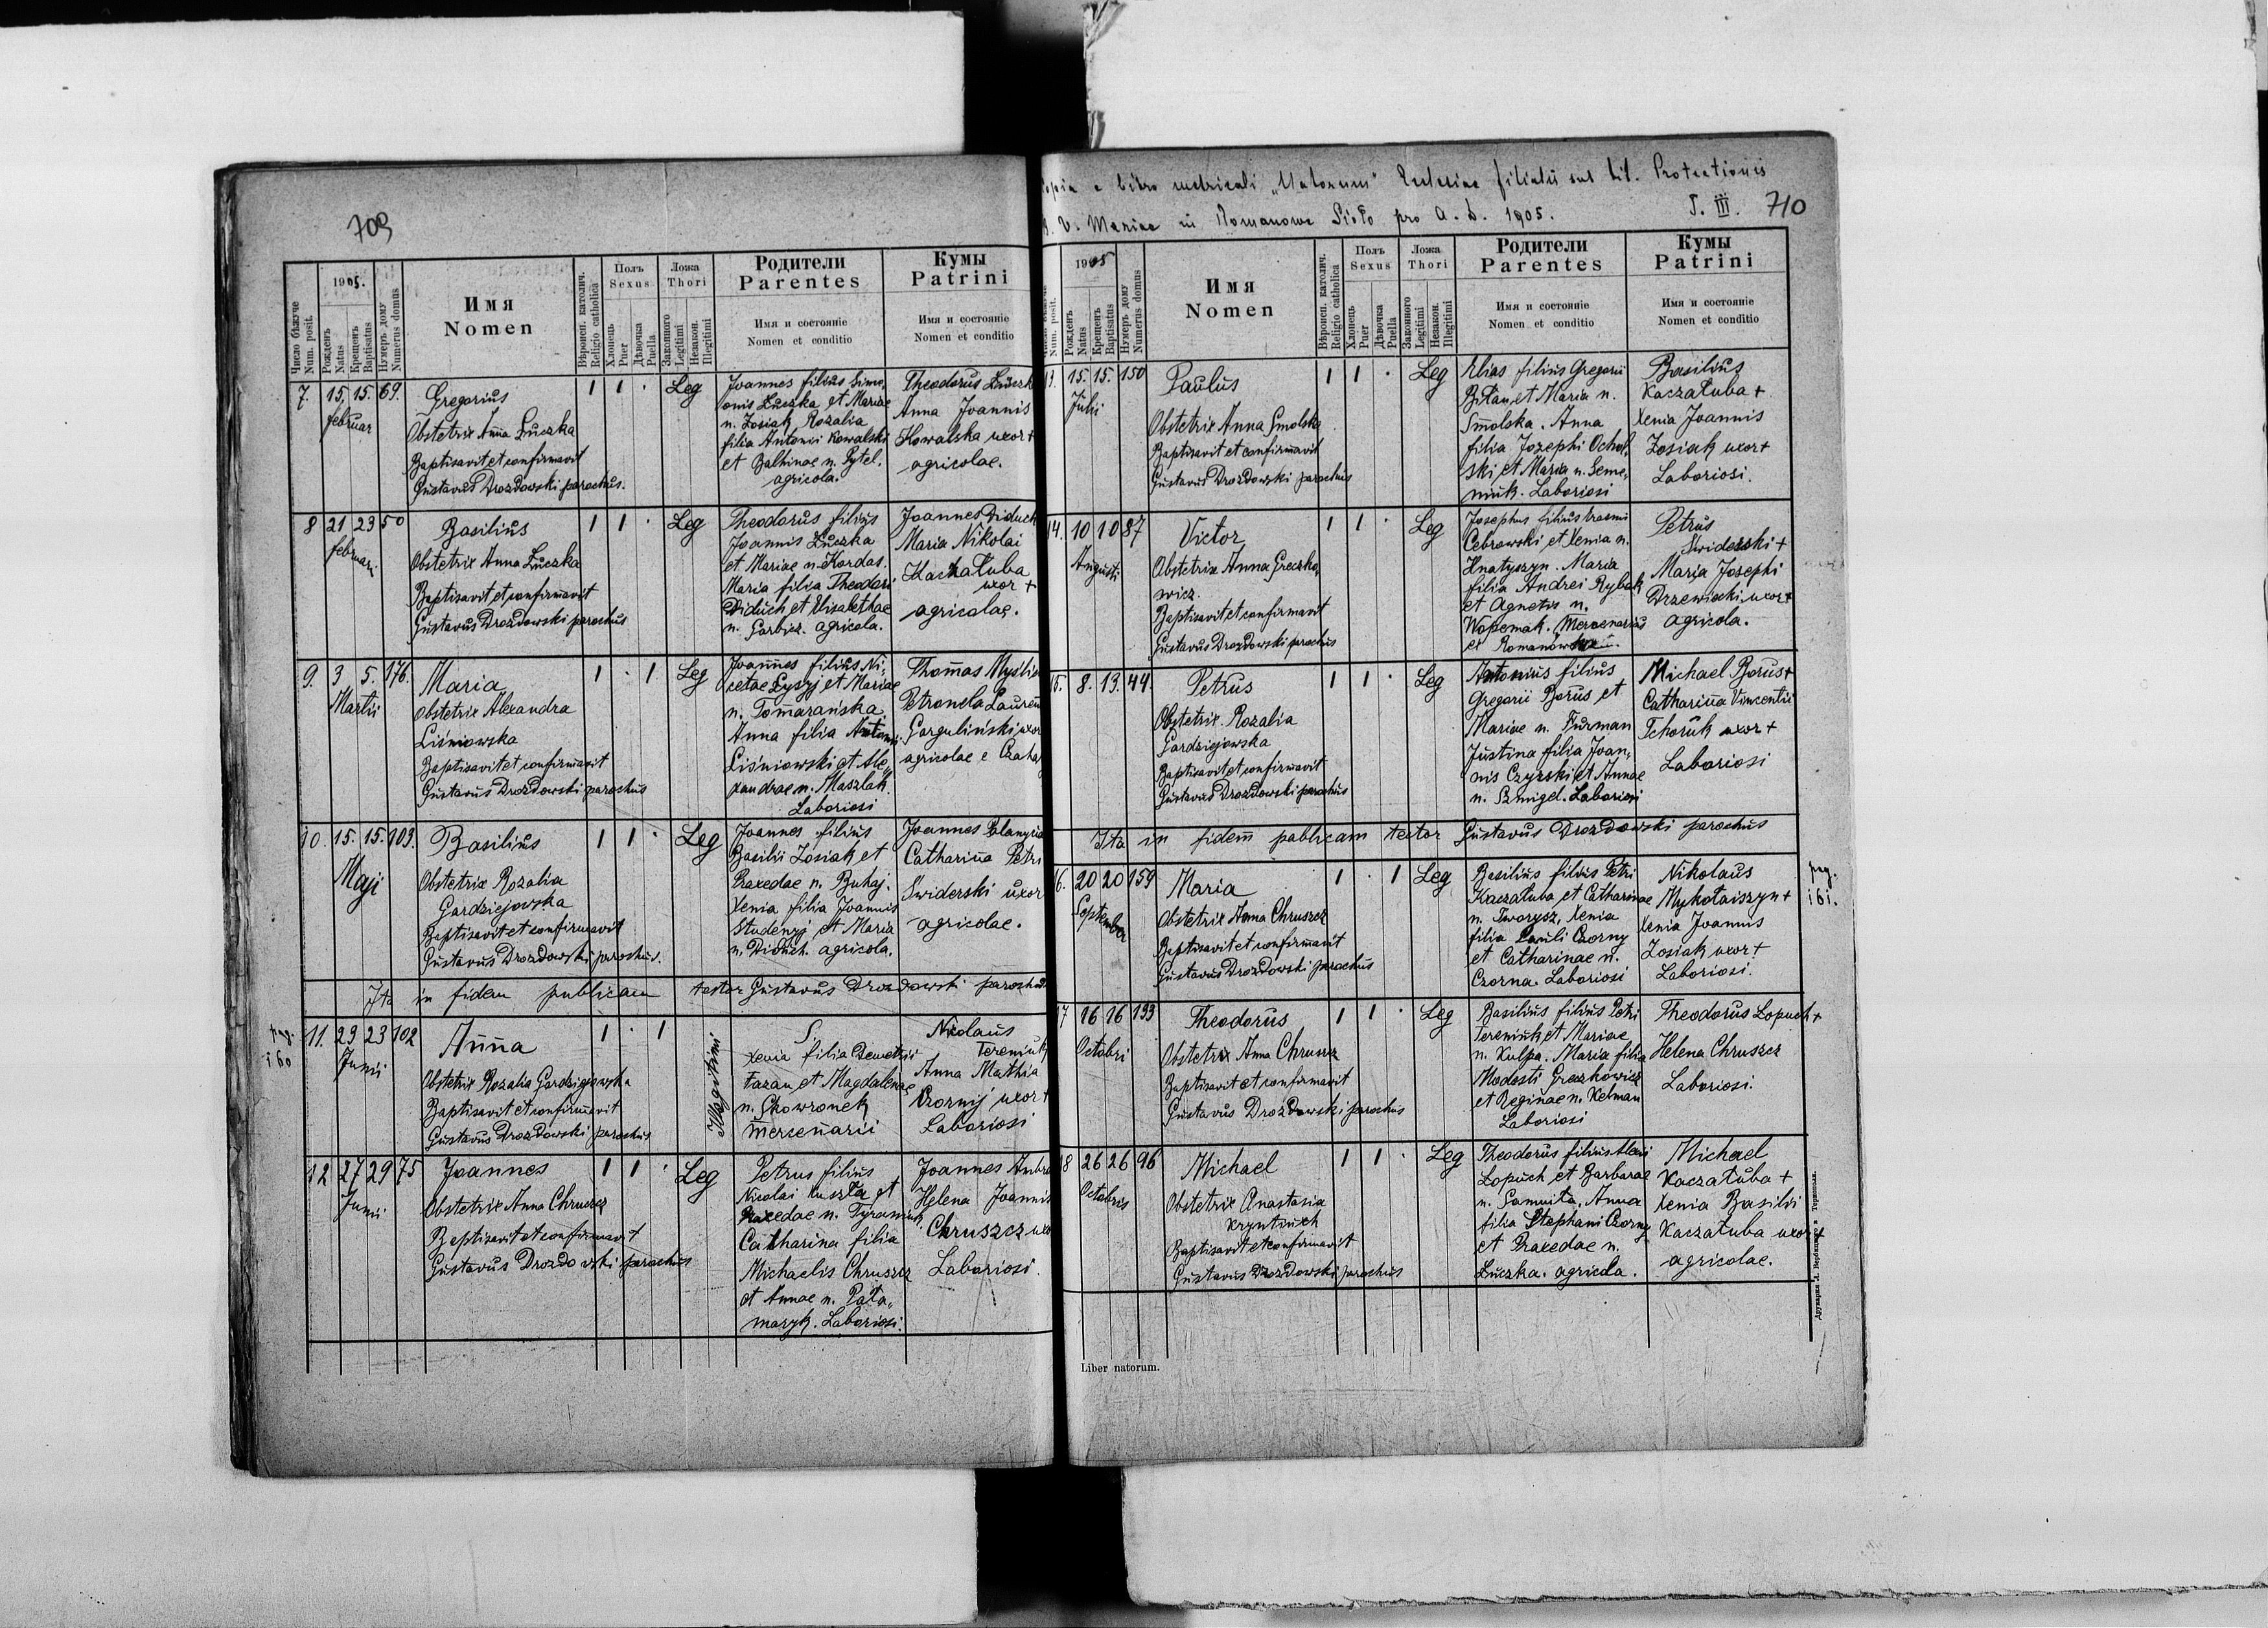 709
1905.
Число бѣжуче
Num. posit.
Рожденъ
Natus
Крещенъ
Baptisatus
Нумеръ дому
Numerus domus
Имя
Nomen
Вѣроисп. католич.
Religio catholica
Полъ
Sexus
Хлопець
Puer
Дѣвочка
Puella
Ложа
Thori
Законного
Legitimi
Незакон.
Illegitimi
Родители
Parentes
Имя и состояніе
Nomen et conditio
Кумы
Patrini
Имя и состояніе
Nomen et conditio
7. 15. 15. 69.
februar
Gregorius
Obstetrix Anna Łuczka
Baptisavit et confirmavit
Gustavus Drozdowski parochus.
1 1 . Leg
Joannes filius Sime,
onis Łuczka et Mariae
n. Zosiak, Rozalia
filia Antonii Kowalski
et Balbinae n. Pytel.
agricola.
Theodorus Łuczk
Anna Joannis
Kowalska uxor +
agricolae.
8 21 23 50
februari
Basilius
Obstetrix Anna Łuczka
Baptisavit et confirmavit
Gustavus Drozdowski parochus
1 1 . Leg
Theodorus filius
Joannis Łuczka
et Mariae n. Kordas.
Maria filia Theodori
Diduch et Elisabethae
n. Garbicz. agricola.
Joannes Diduch
Maria Nikolai
Kaczałuba
uxor +
agricolae.
9. 3 5. 176.
Martii
Maria
Obstetrix Alexandra
Liśniowska
Baptisavit et confirmavit
Gustavus Drozdowski parochus
1 . 1 Leg
Joannes filius Ni,
cetae Łyszyj et Mariae
n. Tomarańska.
Anna filia Antonii
Liśniowski et Ale,
xandrae n. Maszlak.
Laboriosi
Thomas Myśli
Petronela Lauren
Gorguliński uxor
agricolae e
10. 15. 15. 103.
Maji
Basilius
Obstetrix Rozalia
Gardziejowska
Baptisavit et confirmavit
Gustavus Drozdowski parochus.
1 1 . Leg
Joannes filius
Basilii Zosiak et
Praxedae n. Buhaj.
Xenia filia Joannis
Studenyj et Maria
n. Diduch. agricola.
Joannes
Catharina Petri
Swiderski uxor
agricolae.
Ita in fidem publicam testor Gustavus Drozdowski parochus
pag.
160
11. 23 23 102
Junii
Anna
Obstetrix Rozalia Gardziejowska
Baptisavit et confirmavit
Gustavus Drozdowski parochus
1 . 1
Illegitimi
Xenia filia Demetrii
Tazan et Magdalenae
n. Skowronek
mercenarii
Nicolaus
Tereniuk
Anna Mathia
Czornij uxor +
Laboriosi
12 27 29 75
Junii
Joannes
Obstetrix Anna Chruszcz
Baptisavit et confirmavit
Gustavus Drozdowski parochus
1 1 . Leg
Petrus filius
Nicolai Kuszta et
Praxedae n. Tyraniuk.
Catharina filia
Michaelis Chruszcz
et Annae n. Pała,
maryk. Laboriosi.
Joannes
Helena Joannis
Chruszcz uxo
Laboriosi.
opia e libro metricali „Natorum" Ecclesiae filialis sub tit. Protectionis
B. V. Mariae in Romanowe Sioło pro A. D. 1905.
T. III. 710
1905
Num. posit.
Рожденъ
Natus
Крещенъ
Baptisatus
Нумеръ дому
Numerus domus
Имя
Nomen
Вѣроисп. католич.
Religio catholica
Полъ
Sexus
Хлопець
Puer
Дѣвочка
Puella
Ложа
Thori
Законного
Legitimi
Незакон.
Illegitimi
Родители
Parentes
Имя и состояніе
Nomen et conditio
Кумы
Patrini
Имя и состояніе
Nomen et conditio
13. 15. 15. 150
Julii
Paulus
Obstetrix Anna Smolska
Baptisavit et confirmavit
Gustavus Drozdowski parochus
1 1 . Leg
Elias filius Gregorii
Bitau, et Maria n.
Smolska. Anna
filia Josephi Ochol,
ski et Maria n. Seme,
niuk. Laboriosi
Basilius
Kaczałuba +
Xenia Joannis
Zosiak uxor +
Laboriosi.
14. 10 10 87
Augusti
Victor
Obstetrix Anna Greczko,
wicz.
Baptisavit et confirmavit
Gustavus Drozdowski parochus
1 1 . Leg
Josephus filius Erasmi
Cebrowski et Xenia n.
Hnatyszyn. Maria
filia Andrei Rybak
et Agnetis n.
Wopemak. Mercenarius
Petrus
Swiderski +
Maria Josephi
Drzewicki uxor +
agricola.
15. 8. 13. 44.
Petrus
Obstetrix Rozalia
Gardziejowska
Baptisavit et confirmavit
Gustavus Drozdowski parochus
1 1 . Leg
Antonius filius
Gregorii Borus et
Mariae n. Furman
Justina filia Joan,
nis Czyrski et Annae
n. Szmigel. Laboriosi
Michael Borus +
Catharina Vincentii
Tchoruk uxor +
Laboriosi
Ita in fidem publicam testor Gustavus Drozdowski parochus
16. 20 20 159
September
Maria
Obstetrix Anna Chruszcz
Baptisavit et confirmavit
Gustavus Drozdowski parochus
1 . 1 Leg
Basilius filius Petri
Kaczałuba et Catharinae
n. Tworysz, Xenia
filia Pauli Czorny
et Catharinae n.
Czorna. Laboriosi
Nikolaus
Mykołaiszyn +
Xenia Joannis
Zosiak uxor +
Laboriosi.
pag.
161.
17 16 16 193
Octobri
Theodorus
Obstetrix Anna Chruszcz
Baptisavit et confirmavit
Gustavus Drozdowski parochus
1 1 . Leg
Basilius filius Petri
Tereniuk et Mariae
n. Kulpa. Maria filia
Modesti Greczkowicz
et Reginae n. Kelman
Laboriosi
Theodorus Lopuch +
Helena Chruszcz
Laboriosi.
18 26 26 96
Octobris
Michael
Obstetrix Anastasia
Baptisavit et confirmavit
Gustavus Drozdowski parochus
1 1 . Leg
Theodorus filius Alexii
Lopuch et Barbarae
n. Samuita. Anna
filia Stephani Czorny
et Praxedae n.
Łuczka. agricola.
Michael
Kaczałuba +
Xenia Basilii
Kaczałuba uxor +
agricolae.
Liber natorum.